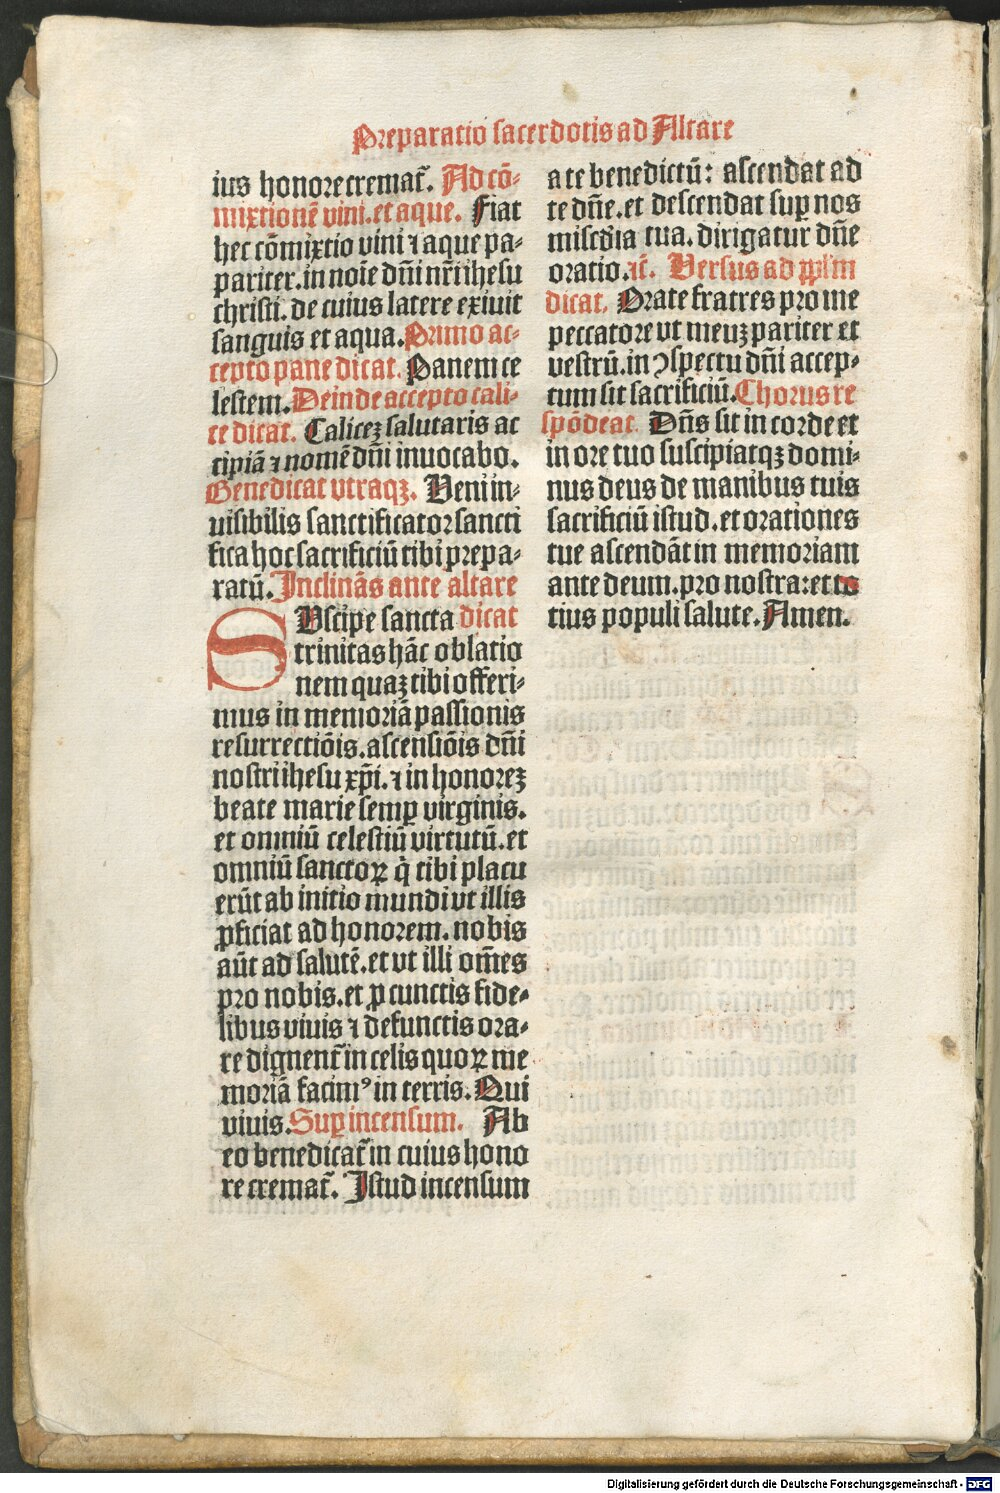 Preparatio sacerdotis ad Altare
ius honore cremat᷑. Ad cō⸗
mixtionē vini. et aque. Fiat
hec cōmixtio vini ⁊ aque pa⸗
pariter. in noīe dn̄i nr̄i ihesu
christi. de cuius latere exiuit
sanguis et aqua. Primo ac⸗
cepto pane dicat. Panem ce
lestem. Deinde accepto cali⸗
ce dicat. Caliceꝫ salutaris ac
cipiā ⁊ nomē dn̄i inuocabo.
Benedicat vtraqꝫ. Veni in⸗
uisibilis sanctificator sancti
fica hoc sacrificiū tibi prepa⸗
ratū. Inclinās ante altare
SUscipe sancta dicat
trinitas hāc oblatio
nem quaꝫ tibi offeri⸗
mus in memoriā passionis
resurrectiōis. ascensiōis dn̄i
nostri ihesu xp̄i. ⁊ in honoreꝫ
beate marie semꝑ virginis.
et omniū celestiū virtutū. et
omniū sanctoꝝ q̇ tibi placu
erūt ab initio mundi vt illis
ꝓficiat ad honorem. nobis
aūt ad salutē. et vt illi om̄es
pro nobis. et ꝓ cunctis fide⸗
libus viuis ⁊ defunctis ora⸗
re dignent᷑ in celis quoꝝ me
moriā facimꝰ in terris. Qui
viuis. Suꝑ incensum. Ab
eo benedicat᷑ in cuius hono
re cremat᷑. Istud incensum
a te benedictū: ascendat ad
te dn̄e. et descendat suꝑ nos
miscd̄ia tua. dirigatur dn̄e
oratio. ⁊c̄. Versus ad ꝑpl̄m
dicat. Orate fratres pro me
peccatore vt meuꝫ pariter et
vestrū. in ꝯspectu dn̄i accep⸗
tum sit sacrificiū. Chorus re
spōdeat. Dn̄s sit in corde et
in ore tuo suscipiatqꝫ domi⸗
nus deus de manibus tuis
sacrificiū istud. et orationes
tue ascendāt in memoriam
ante deum. pro nostra: et to
tius populi salute. Amen.
Digitalisierung gefördert durch die Deutsche Forschungsgemeinschaft - DFG